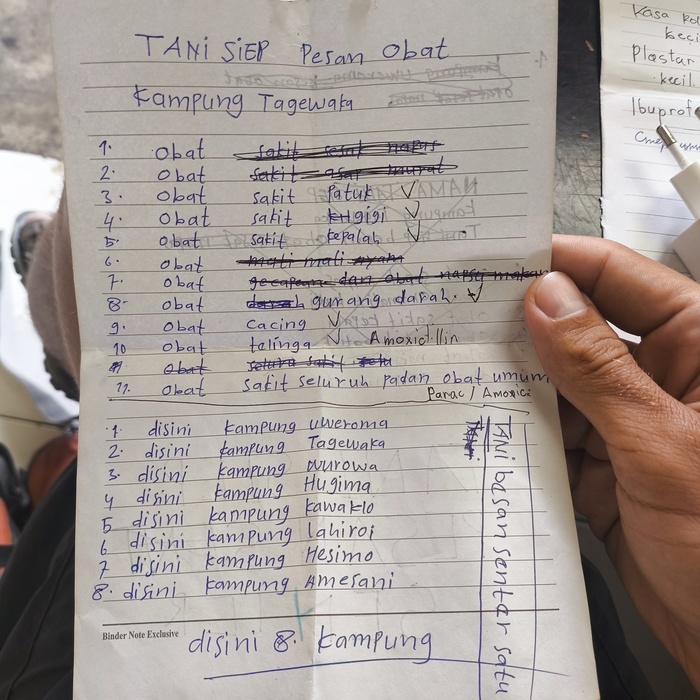 TANI SIEP Pesan Obat
Kampung Tagewaka
1. Obat
2. Obat
3. Obat sakit Patuk ✓
4. Obat sakit gigi ✓
5. Obat sakit kepalah ✓
6. Obat mati mati ayam
7. Obat gecapean dan obat napsu makan
8. Obat darah gurang darah. ✓
9. Obat cacing ✓
10 Obat telinga ✓ Amoxicillin
Obat
11. Obat sakit seluruh padan obat umum
Parac / Amoxici
1. disini kampung uweroma
2. disini kampung Tagewaka
3. disini kampung wurowa
4 disini kampung Hugima
5 disini kampung kawaklo
6 disini kampung lahiroi
7 disini kampung Hesimo
8. disini kampung Amesani
TANI basan sentar satu
Binder Note Exclusive
disini 8. kampung
Kasa
keci
Plastar
kecil.
Ibuprof